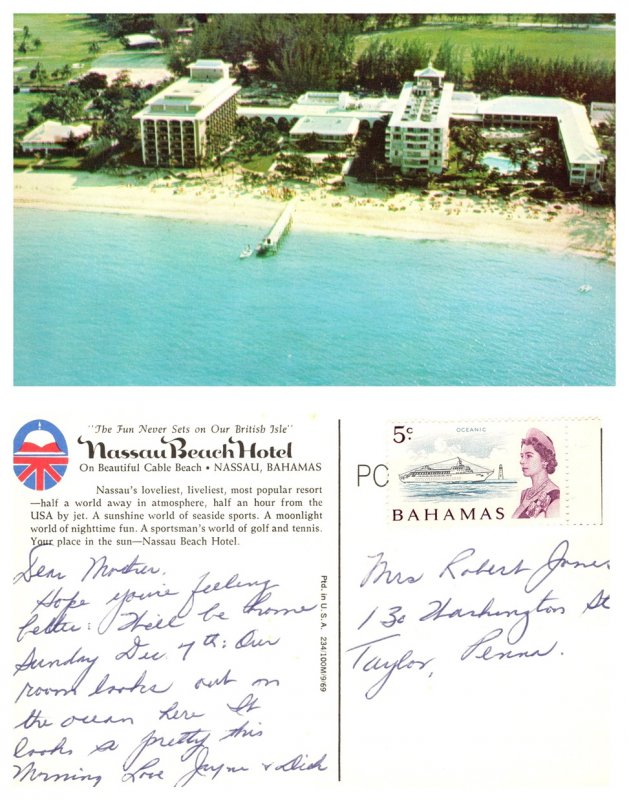 "The Fun Never Sets on Our British Isle"
Nassau Beach Hotel
On Beautiful Cable Beach • NASSAU, BAHAMAS
Nassau's loveliest, liveliest, most popular resort
—half a world away in atmosphere, half an hour from the
USA by jet. A sunshine world of seaside sports. A moonlight
world of nighttime fun. A sportsman's world of golf and tennis.
Your place in the sun—Nassau Beach Hotel.
Dear Mother.
Hope you're feeling
better: We'll be home
Sunday Dec. 7th: Our
room looks out on
the ocean here It
looks so pretty this
Morning Love Jayne & Dick
Ptd. in U.S.A. 234/100M/9/69
PC
5c
OCEANIC
BAHAMAS
Mrs Robert Jones
130 Washington St
Taylor, Penna.